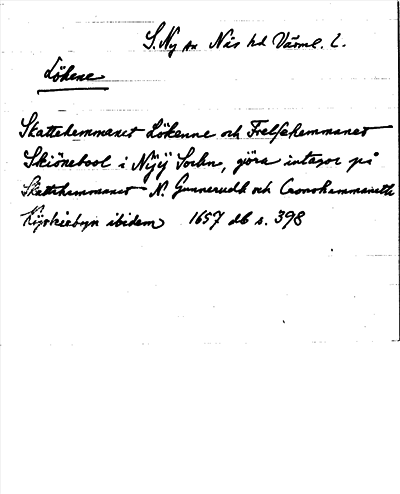 S. Ny sn Näs hd Värml. l.
Lökene
Skattehemmanet Lökenne och Frelsehemmanet
Skiönebool i Nÿÿ Sochn, göra intagor på
Skattehemmanet N. Gunnerudh och Cronohemmaneth
Kÿrkiebyn ibidem 1657 db s. 398